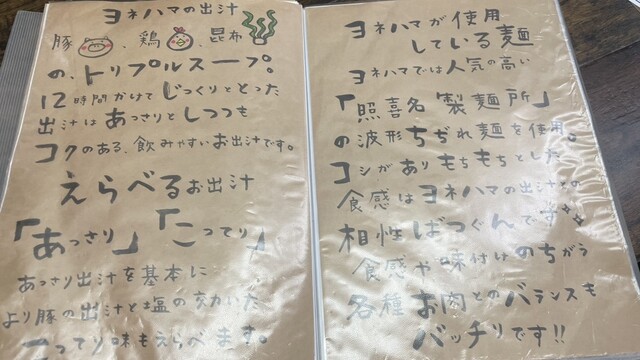 ヨネハマの出汁
豚、鶏、昆布
の、トリプルスープ。
12時間かけてじっくりととった
出汁はあっさりとしつつも
コクのある、飲みやすいお出汁です。
えらべるお出汁
「あっさり」「こってり」
あっさり出汁を基本に
より豚の出汁と塩の効いた
こってり味もえらべます。
ヨネハマが使用
している麺
ヨネハマでは人気の高い
「照喜名製麺所」
の波形ちぢれ麺を使用。
コシがありもちもちとした
食感はヨネハマの出汁との
相性ばつぐんです
食感や味付けのちがう
各種お肉とのバランスも
バッチリです!!